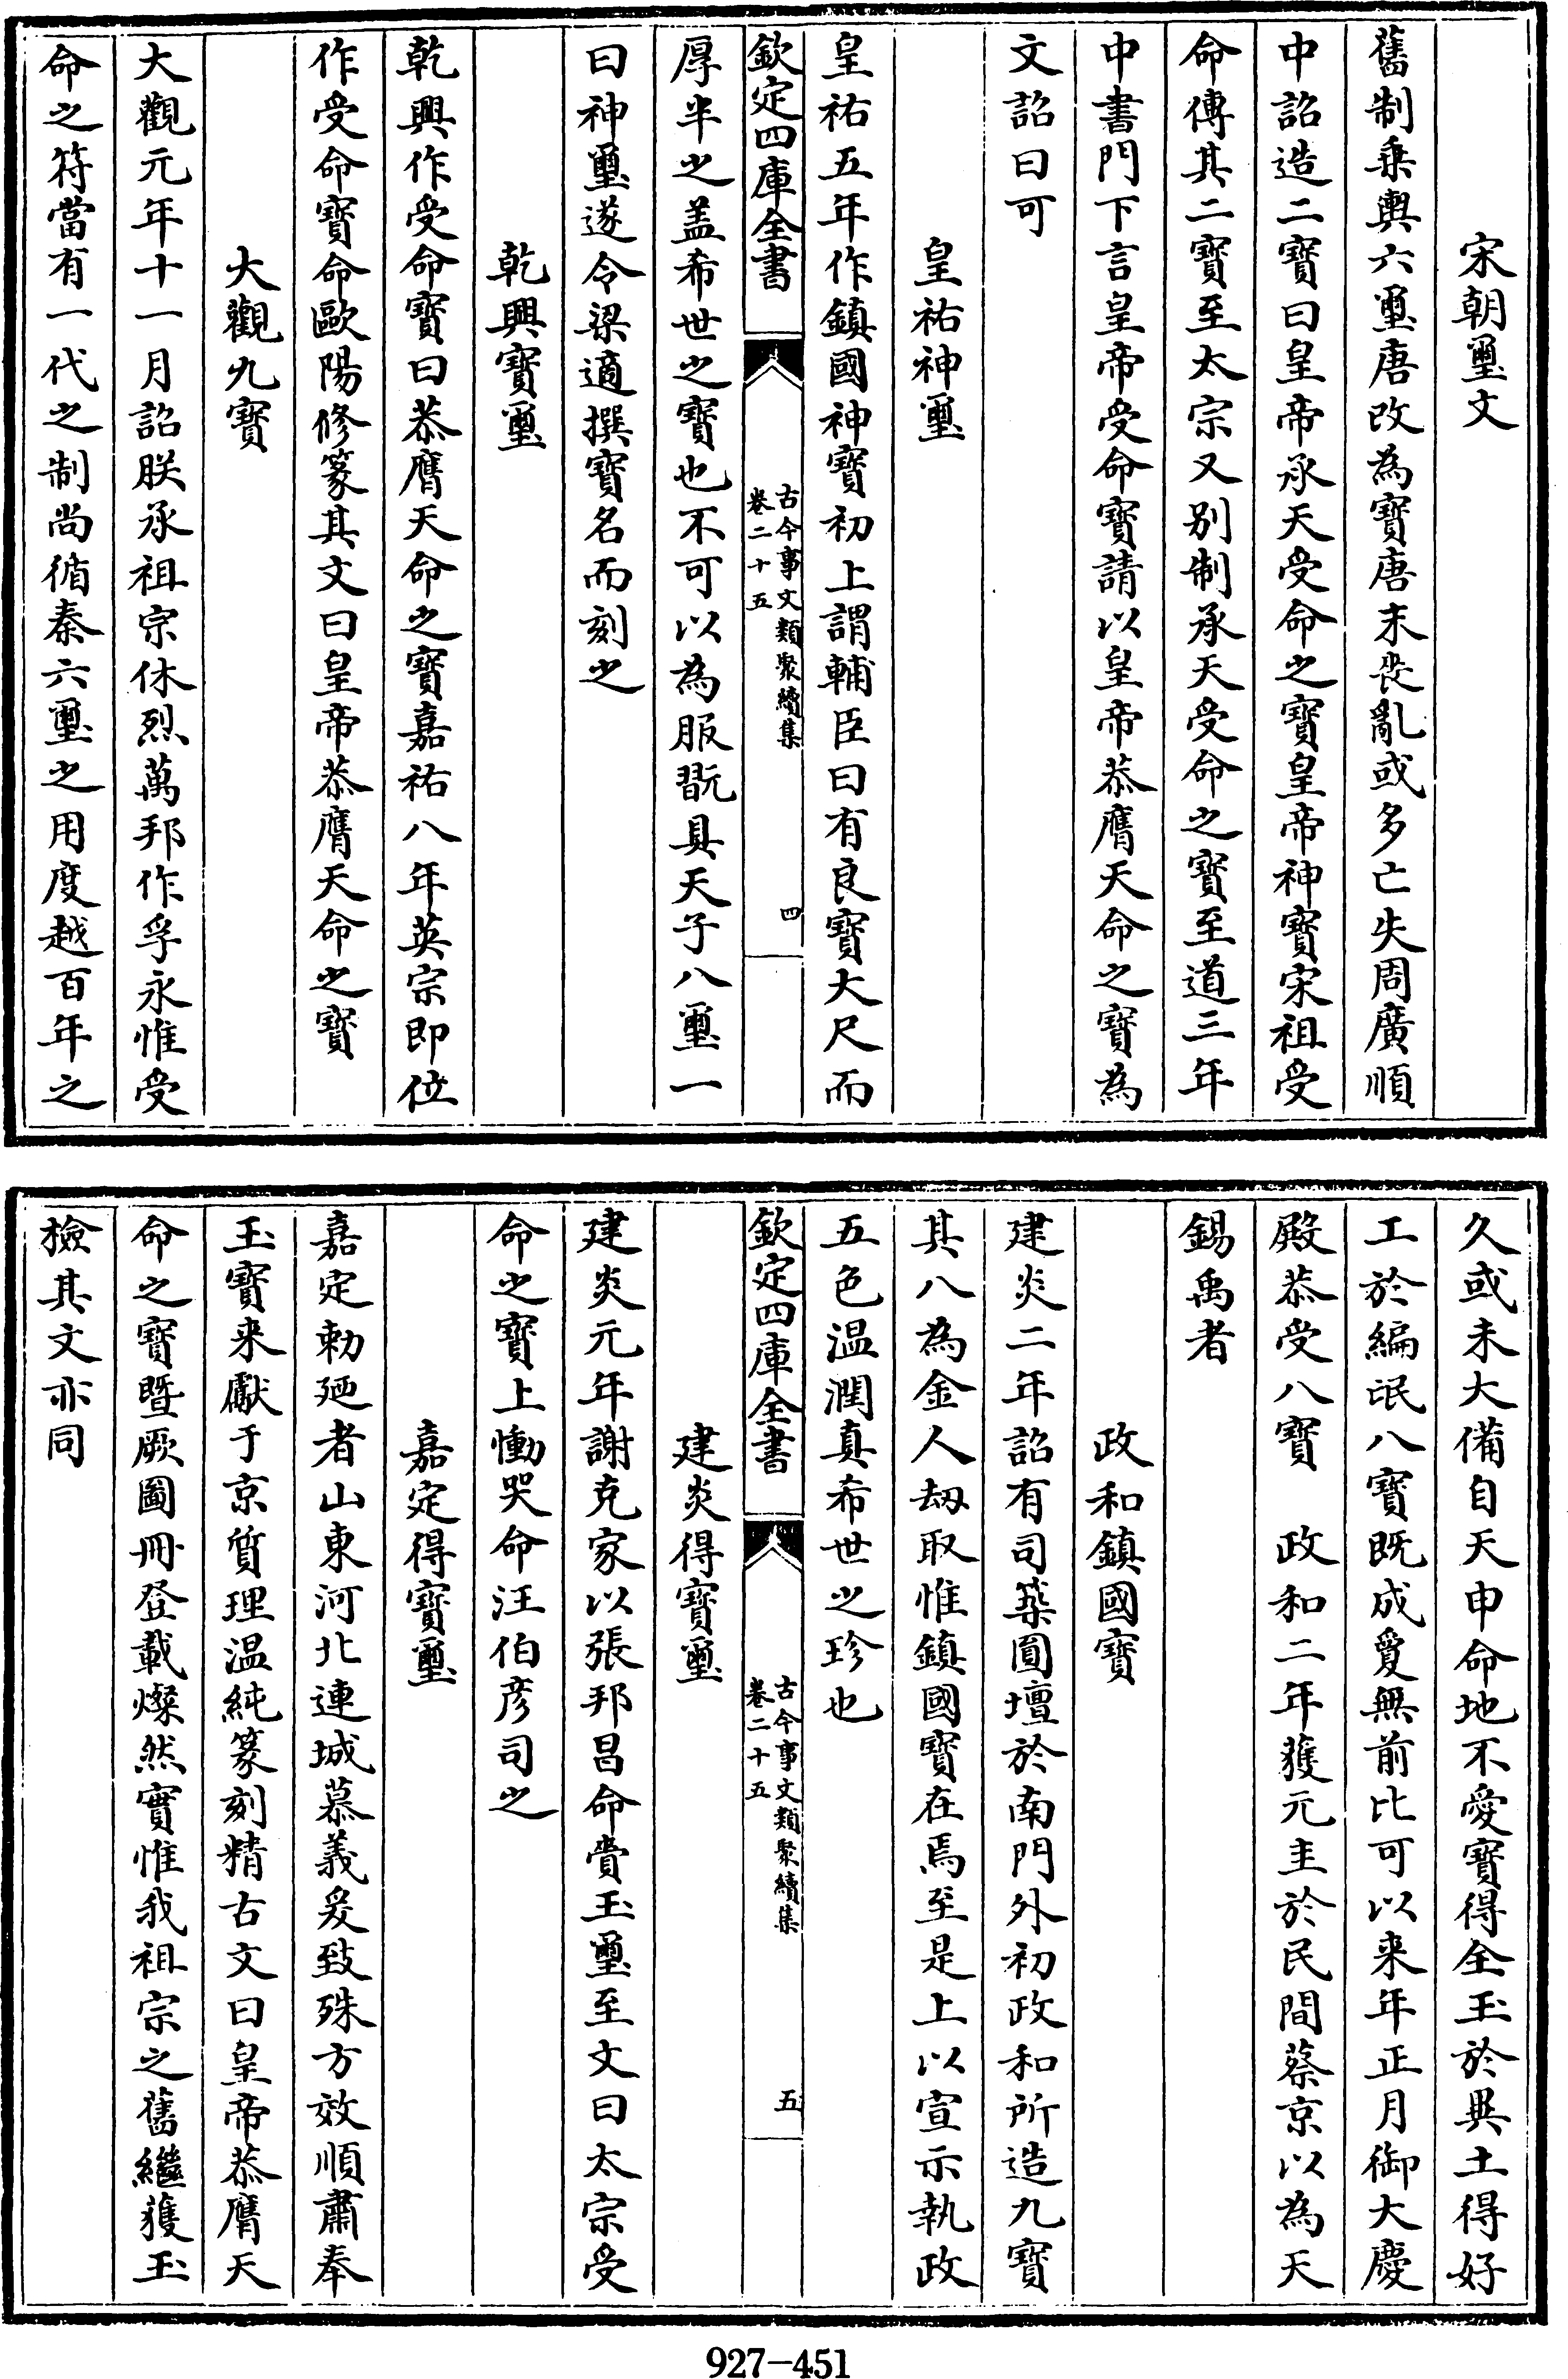 宋朝璽文
舊制乗輿六璽唐改為寶唐末丧亂或多亡失周廣順
中詔造二寶曰皇帝承天受命之寶皇帝神寶宋祖受
命傳其二寶至太宗又別制承天受命之寶至道三年
中書門下言皇帝受命寶請以皇帝恭膺天命之寶為
文詔曰可
皇祐神璽
皇祐五年作鎮國神寶初上謂輔臣曰有良寶大尺而
欽定四庫全書
古今事文類聚續集
卷二十五
四
厚半之盖希世之寶也不可以為服翫具天子八璽一
曰神璽遂令梁適撰寶名而刻之
乾興寶璽
乾興作受命寶曰恭膺天命之寶嘉祐八年英宗即位
作受命寶命歐陽修篆其文曰皇帝恭膺天命之寶
大觀九寶
大觀元年十一月詔朕承祖宗休烈萬邦作孚永惟受
命之符當有一代之制尚循秦六璽之用度越百年之
久或未大備自天申命地不愛寶得全玉於異土得好
工於編氓八寶既成爰無前比可以来年正月御大慶
殿恭受八寶　政和二年獲元圭於民間蔡京以為天
錫禹者
政和鎮國寶
建炎二年詔有司築圓壇於南門外初政和所造九寶
其八為金人刼取惟鎮國寶在焉至是上以宣示執政
五色温潤真希世之珍也
欽定四庫全書
古今事文類聚續集
卷二十五
五
建炎得寶璽
建炎元年謝克家以張邦昌命賫玉璽至文曰太宗受
命之寶上慟哭命汪伯彦司之
嘉定得寶璽
嘉定勅廼者山東河北連城慕義爰致殊方效順肅奉
玉寶来獻于京質理温純篆刻精古文曰皇帝恭膺天
命之寶暨厥圖冊登載燦然實惟我祖宗之舊繼獲玉
檢其文亦同
927-451